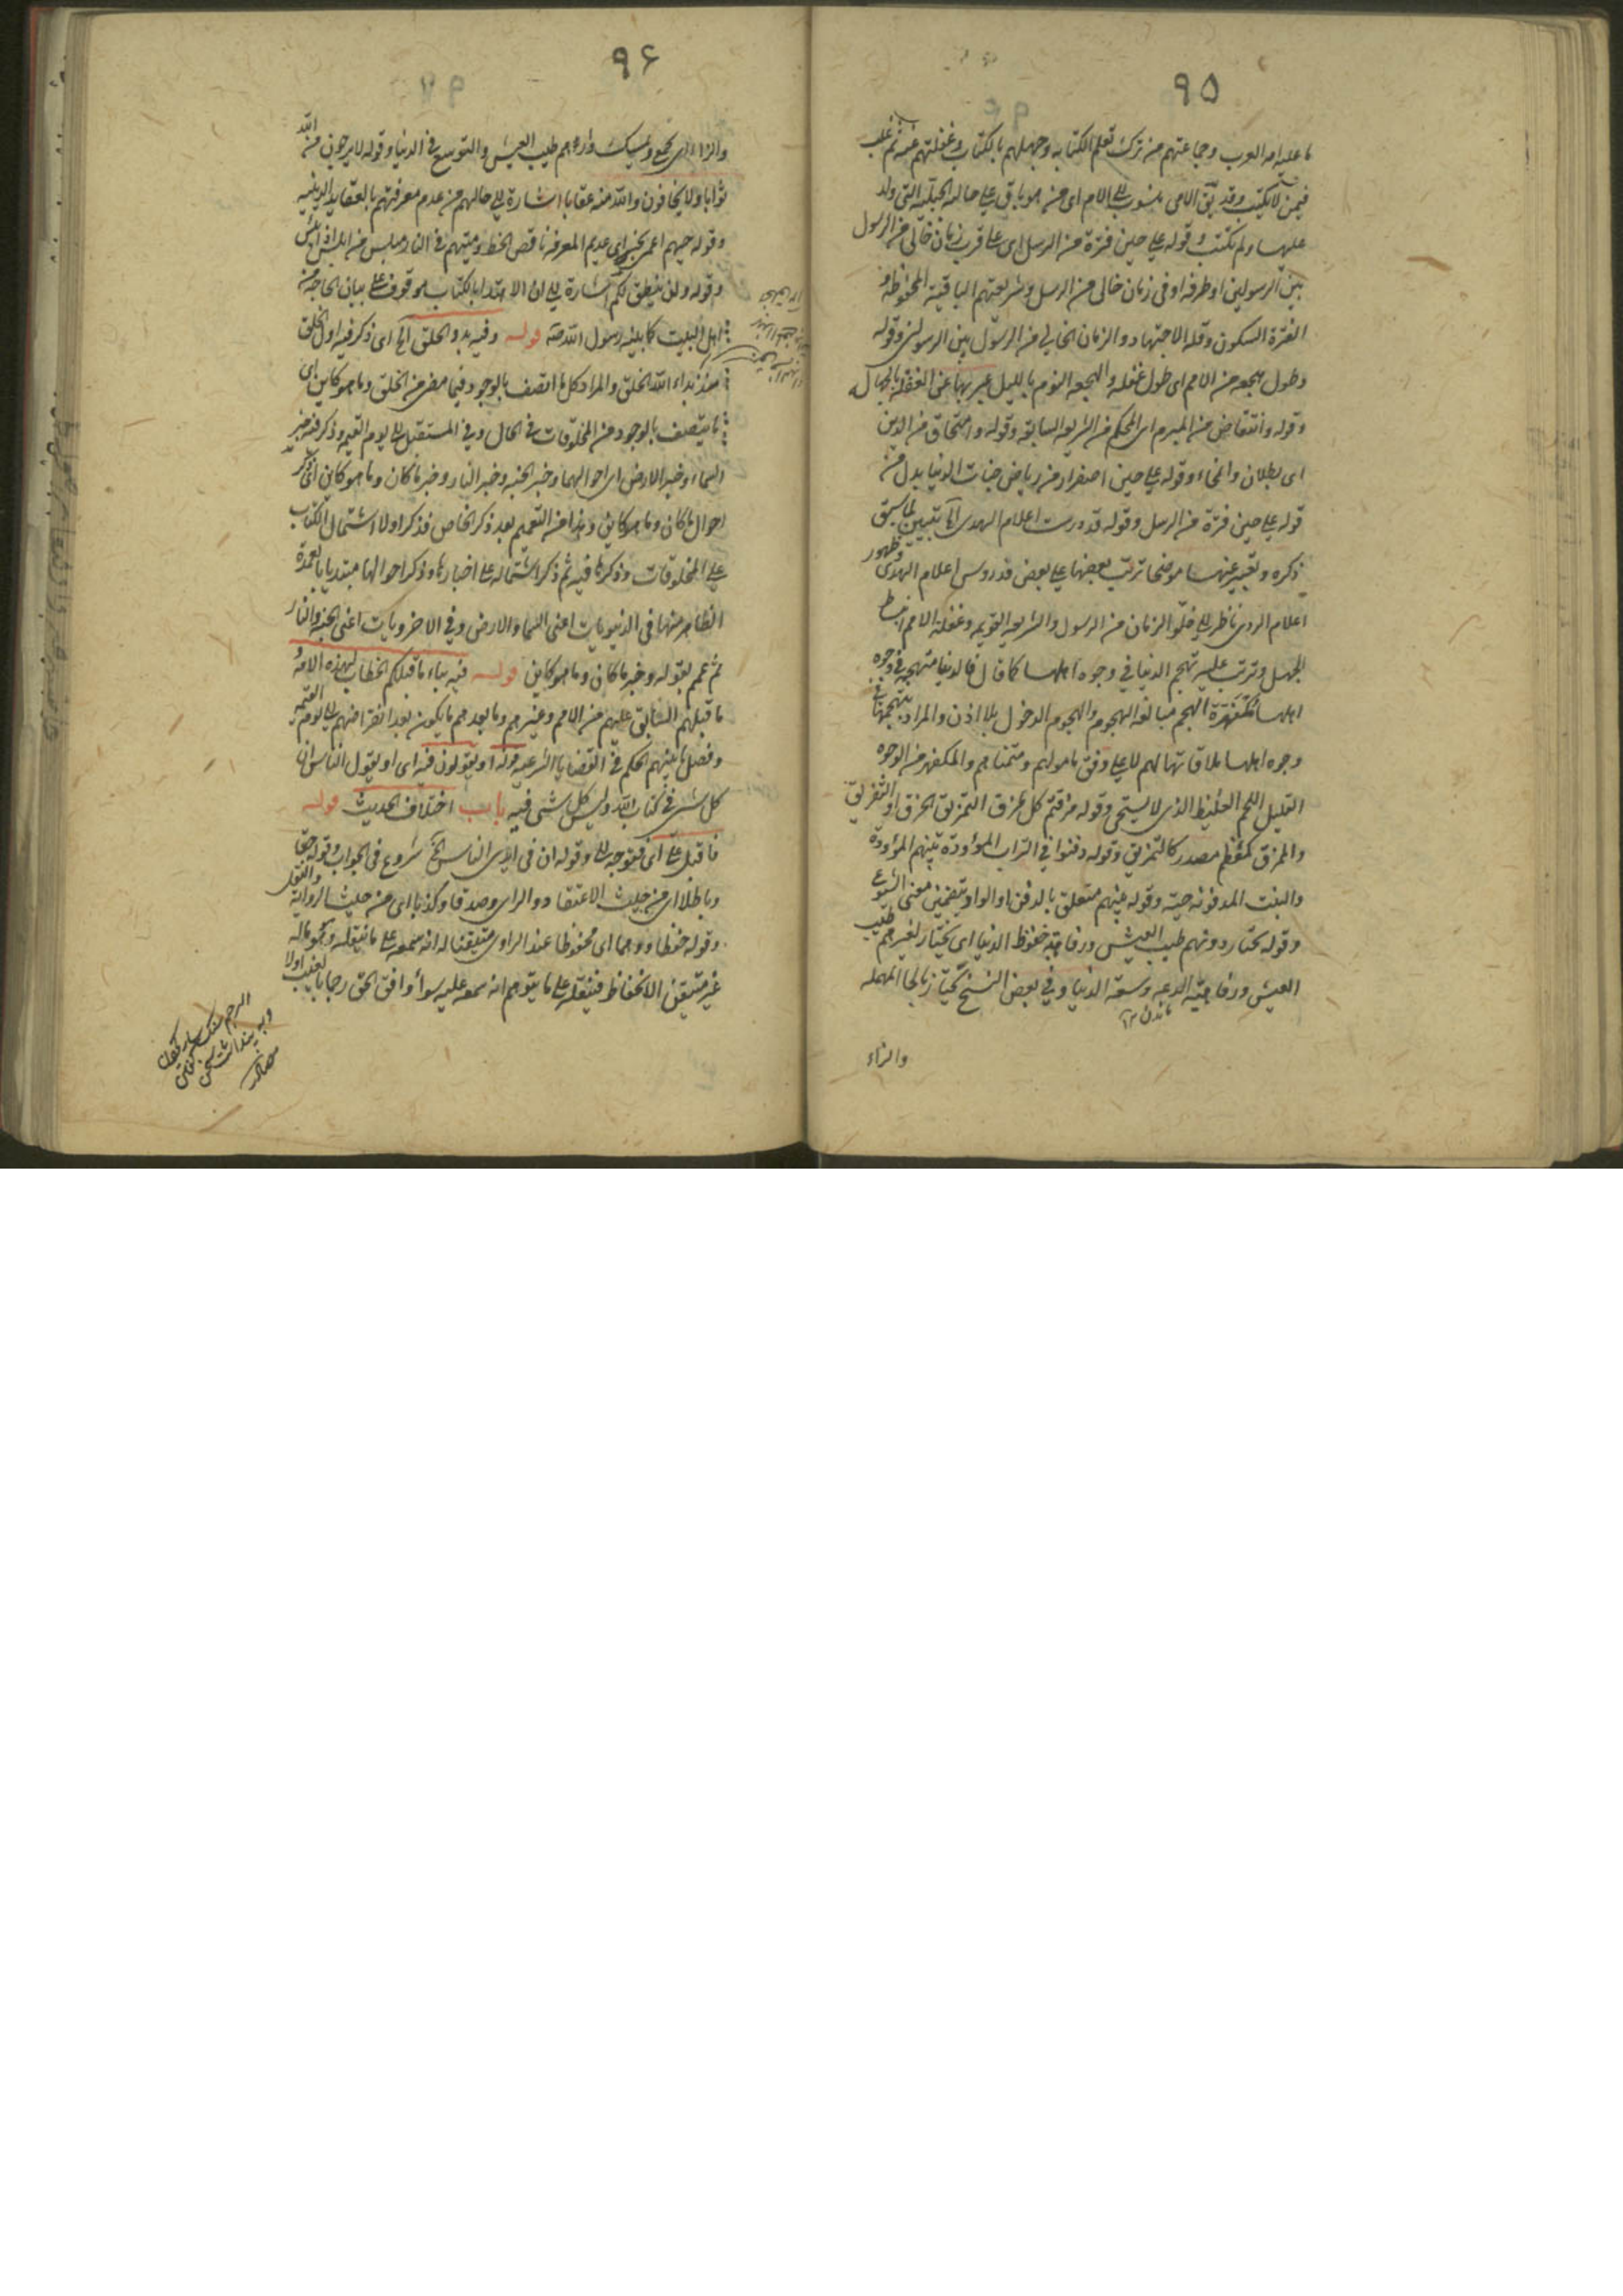 ٩٥
ما عليه امة العرب وجماعتهم من ترك تعلم الكتابة وجهلهم بالكتاب وغفلتهم عنه ثم غلب
فيمن لا يكتب وقد يق الامى منسوب الى الام اى من هو باق على حالة الجبلية التى ولد
عليها ولم يكتب وقوله على حين فترة من الرسل اى على قرب زمان خالى من الرسول
بين الرسولين او طرفه او فى زمان خالى من الرسل وشريعتهم الباقية المحفوظة و
الفترة السكون وقلة الاجتهاد والزمان الخالى من الرسول بين الرسولين وقوله
وطول هجعة من الامم اى طول غفلة والهجعة النوم بالليل عبر بها عن الغفلة بالجهالة
وقوله وانتقاض من المبرم اى المحكم من الشريعة السابقة وقوله وامتحاق من الدين
اى بطلان وانمحاء وقوله على حين اصفرار من رياض جنات الدنيا بدل من
قوله على حين فترة من الرسل وقوله قد درست اعلام الهدى الخ تبيين لما سبق
ذكره وتعبير عنها موضحا ترتب بعضها على بعض فدروس اعلام الهدى وظهور
اعلام الردى ناظر الى خلو الزمان من الرسول والشريعة القويمة وغفلة الامم
الجهل وترتب عليه تهجم الدنيا فى وجوه اهلها كما قال فالدنيا متهجمة فى وجوه
اهلها مكفهرة التهجم مبالغة الهجوم والهجوم الدخول بلا اذن والمراد بتهجمها فى
وجوه اهلها ملاقاتها لهم لا على وفق مامولهم ومتمناهم والمكفهر من الوجوه
القليل اللحم الغليظ الذى لا يستحى وقوله مزقتم كل ممزق التمزيق الخرق او التفريق
والممزق كمعظم مصدر كالتمزيق وقوله دفنوا فى التراب الموؤدة بينهم الموؤدة
والبنت المدفونة حية وقوله بينهم متعلق بالدفن او الواد بتضمين معنى الشيوع
وقوله يختار دونهم طيب العيش ورفاهية خفوظ الدنيا اى يختار لغيرهم طيب
العيش ورفاهية الدعة وسعة الدنيا وفى بعض النسخ يحتاز بالحا المهملة
والزاء
٩٦
والزاء اى يجمع ويمسك وراءهم طيب العيش والتوسع فى الدنيا وقوله لا يرجون من الله
ثوابا ولا يخافون والله منه عقابا اشارة الى حالهم من عدم معرفتهم بالعقايد الدينية
وقوله حيهم اعمى نجس اى عديم المعرفة ناقص الحظ وميتهم فى النار مبلس من ابلس اذا يئس
وقوله ولن ينطق لكم اشارة الى ان الاهتداء بالكتاب موقوف على بيان الحاجة من
اهل البيت كما بينه رسول الله صه قوله وفيه بدو الخلق الخ اى ذكر فيه اول الخلق
منذ بداء الله الخلق والمراد كل ما اتصف بالوجود فيما مضى من الخلق وما هو كاين اى
ما يتصف بالوجود من المخلوقات فى الحال وفى المستقبل الى يوم القيمه وذكر فيه خبر
السماء وخبر الارض اى احوالهما وخبر الجنة وخبر النار وخبر ما كان وما هو كاين اى ذكر
احوال ما كان وما هو كاين وهذا من التعميم بعد ذكر الخاص فذكر اولا اشتمال الكتاب
على المخلوقات وذكرها فيه ثم ذكر اشتماله على اخبارها وذكر احوالها مبتديا بالعمدة
الظاهر منها فى الدنيويات اعنى السما والارض وفى الاخرويات اعنى الجنة والنار
ثم عمم بقوله وخبر ما كان وما هو كاين قوله فيه نباء ما قبلكم الخطاب لهذه الامة و
ما قبلهم السابق عليهم من الامم وغيرهم وما بعدهم ما يكون بعد انقراضهم الى يوم القيمه
وفصل ما بينهم الحكم فى القضايا الشرعية قوله او يقولون فيه اى او يقول الناس ان
كل شى فى كتاب الله وليس كل شى فيه باب اختلاف الحديث قوله
فاقبل على اى فتوجه الى وقوله ان فى ايدى الناس الخ شروع فى الجواب وقوله حقا
وباطلا اى من حيث الاعتقاد والراى وصدقا وكذبا اى من حيث الرواية والنقل
وقوله حفظا ووهما اى محفوظا عند الراوى متيقنا له انه سمعه على ما ينقله وموهوما له
غير متيقن الانحفاظ فينقله على ما يتوهم انه سمعه عليه سواء وافق الحق رجما بالغيب اولا